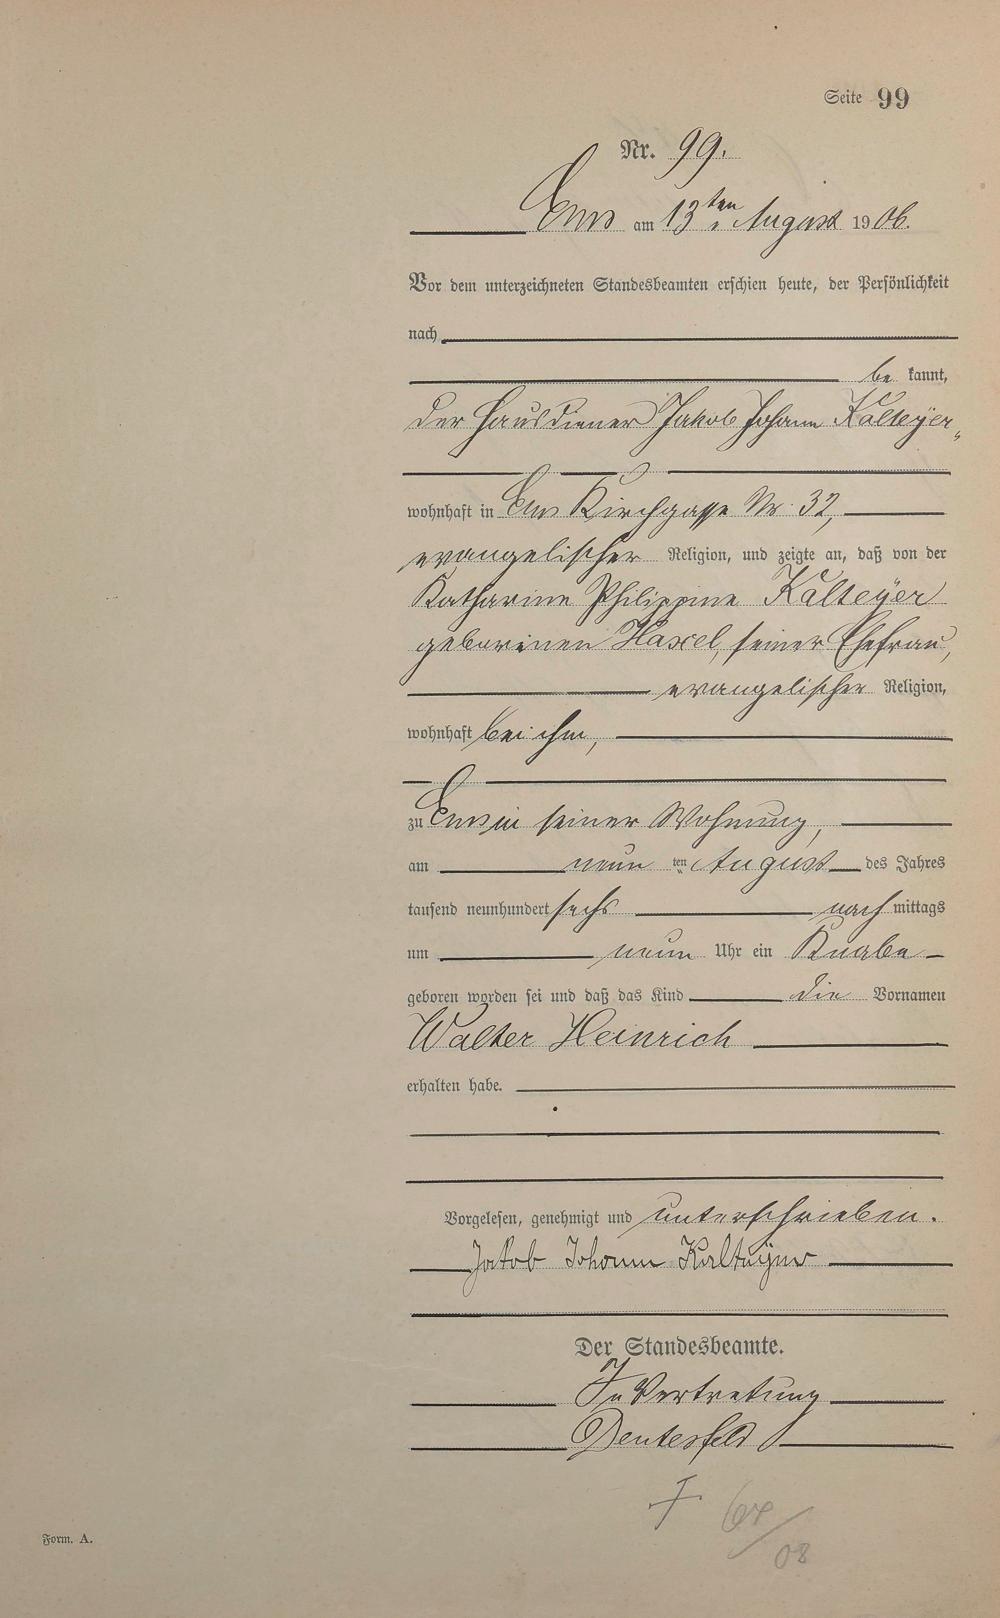 Seite 99
Nr. 99.
Ems am 13ten August 1906.
Vor dem unterzeichneten Standesbeamten erschien heute, der Persönlichkeit
nach
be kannt,
der Hausdiener Jakob Johann Kalteyer,
wohnhaft in Ems Kirchgasse Nr. 32,
evangelischer Religion, und zeigte an, daß von der
Katharine Philippine Kalteyer
geborenen Haxel, seiner Ehefrau,
evangelischer Religion,
wohnhaft bei ihm,
zu Ems in seiner Wohnung,
am neun ten August des Jahres
tausend neunhundert sechs nach mittags
um neun Uhr ein Knabe
geboren worden sei und daß das Kind die Vornamen
Walter Heinrich
erhalten habe.
Vorgelesen, genehmigt und unterschrieben.
Jakob Johann Kalteyer
Der Standesbeamte.
In Vertretung
† 64/08
Form. A.